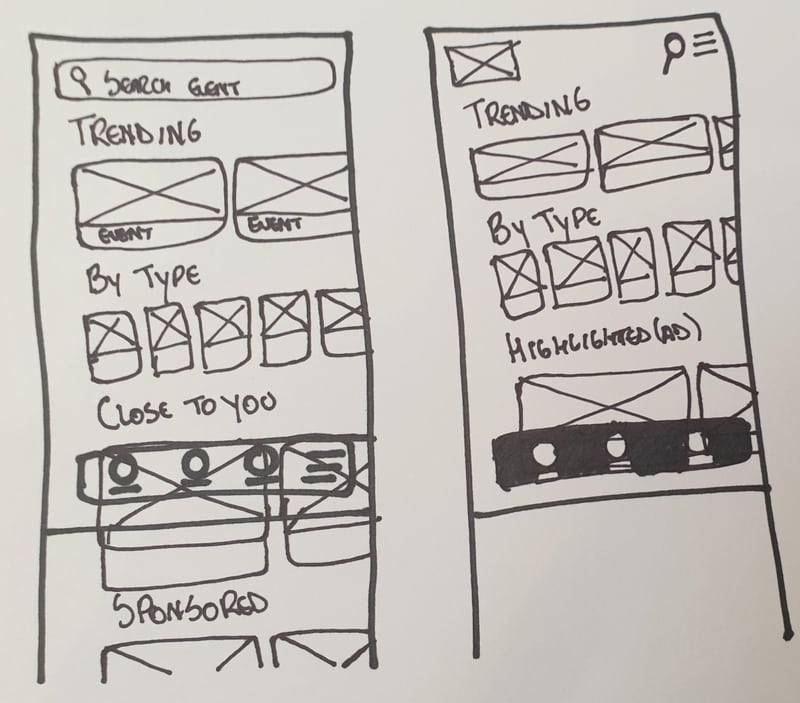 SEARCH EVENT
TRENDING
EVENT
EVENT
BY TYPE
CLOSE TO YOU
SPONSORED
TRENDING
BY TYPE
HIGHLIGHTED (AD)